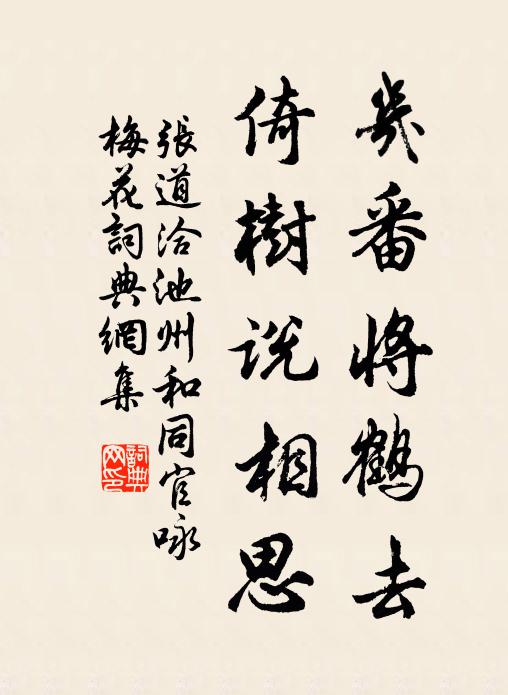 幾番將鶴去
倚樹說相思
張道洽池州和同官咏
梅花詞典網集
詞典网印